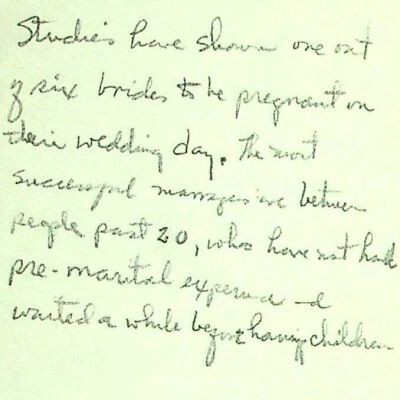 Studies have shown one out
of six brides to be pregnant on
their wedding day. The most
successful marriages are between
people past 20, who have not had
pre-marital experience and
waited a while before having children